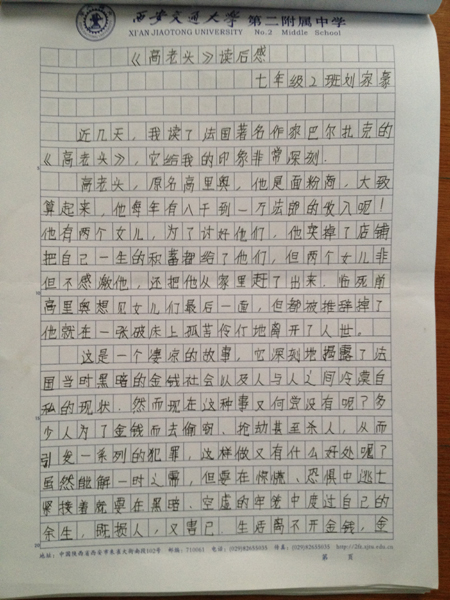 西安交通大学 第二附属中学
XI'AN JIAOTONG UNIVERSITY No.2 Middle School
《高老头》读后感
七年级2班刘家豪
近几天，我读了法国著名作家巴尔扎克的
《高老头》，它给我的印象非常深刻．
高老头，原名高里奥，他是面粉商，大致
算起来，他每年有八千到一万法郎的收入呢！
他有两个女儿，为了讨好他们，他卖掉了店铺
把自己一生的积蓄都给了他们，但两个女儿非
但不感激他，还把他从家里赶了出来，临死前
高里奥想见女儿们最后一面，但都被推辞掉了
他就在一张破床上孤苦伶仃地离开了人世。
这是一个凄凉的故事，它深刻地揭露了法
国当时黑暗的金钱社会以及人与人之间冷漠自
私的现状．然而现在这种事又何尝没有呢？多
少人为了金钱而去偷窃、抢劫甚至杀人，从而
引发一系列的犯罪，这样做又有什么好处呢？
虽然能解一时之需，但要在惊慌、恐惧中逃亡
紧接着就要在黑暗、空虚的牢笼中度过自己的
余生，既损人，又害己．生活离不开金钱，金
地址：中国陕西省西安市东友大街南园102号 邮编：710061 电话：(029)82655035 传真：(029)82655035
第 页